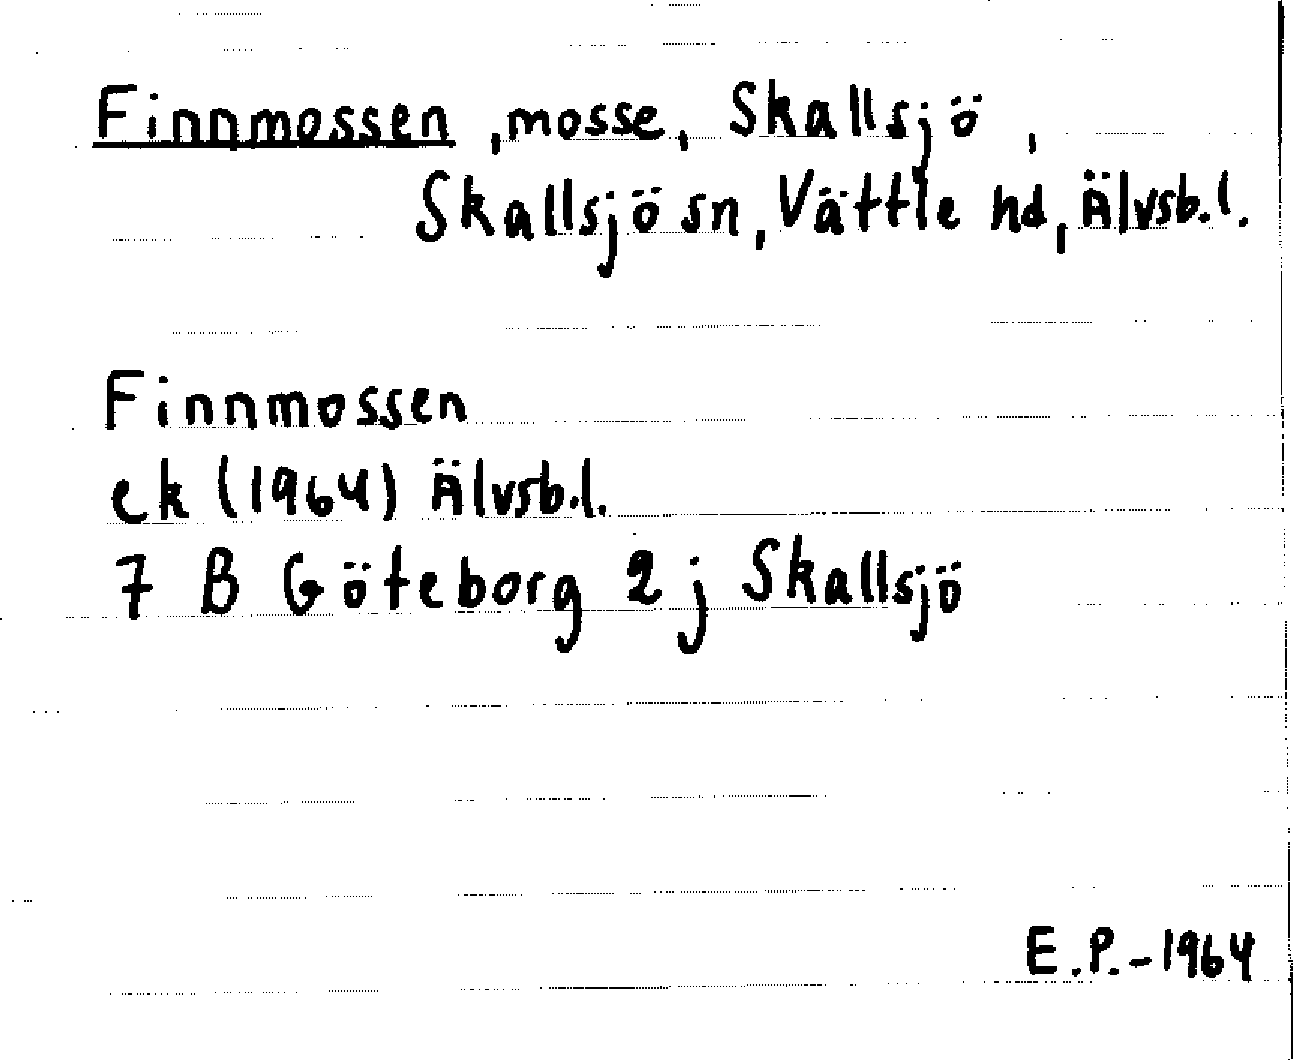 Finnmossen, mosse, Skallsjö,
Skallsjö sn, Vättle hd, Älvsb.l.
Finnmossen
ek (1964) Älvsb.l.
7 B Göteborg 2 j Skallsjö
E.P.-1964